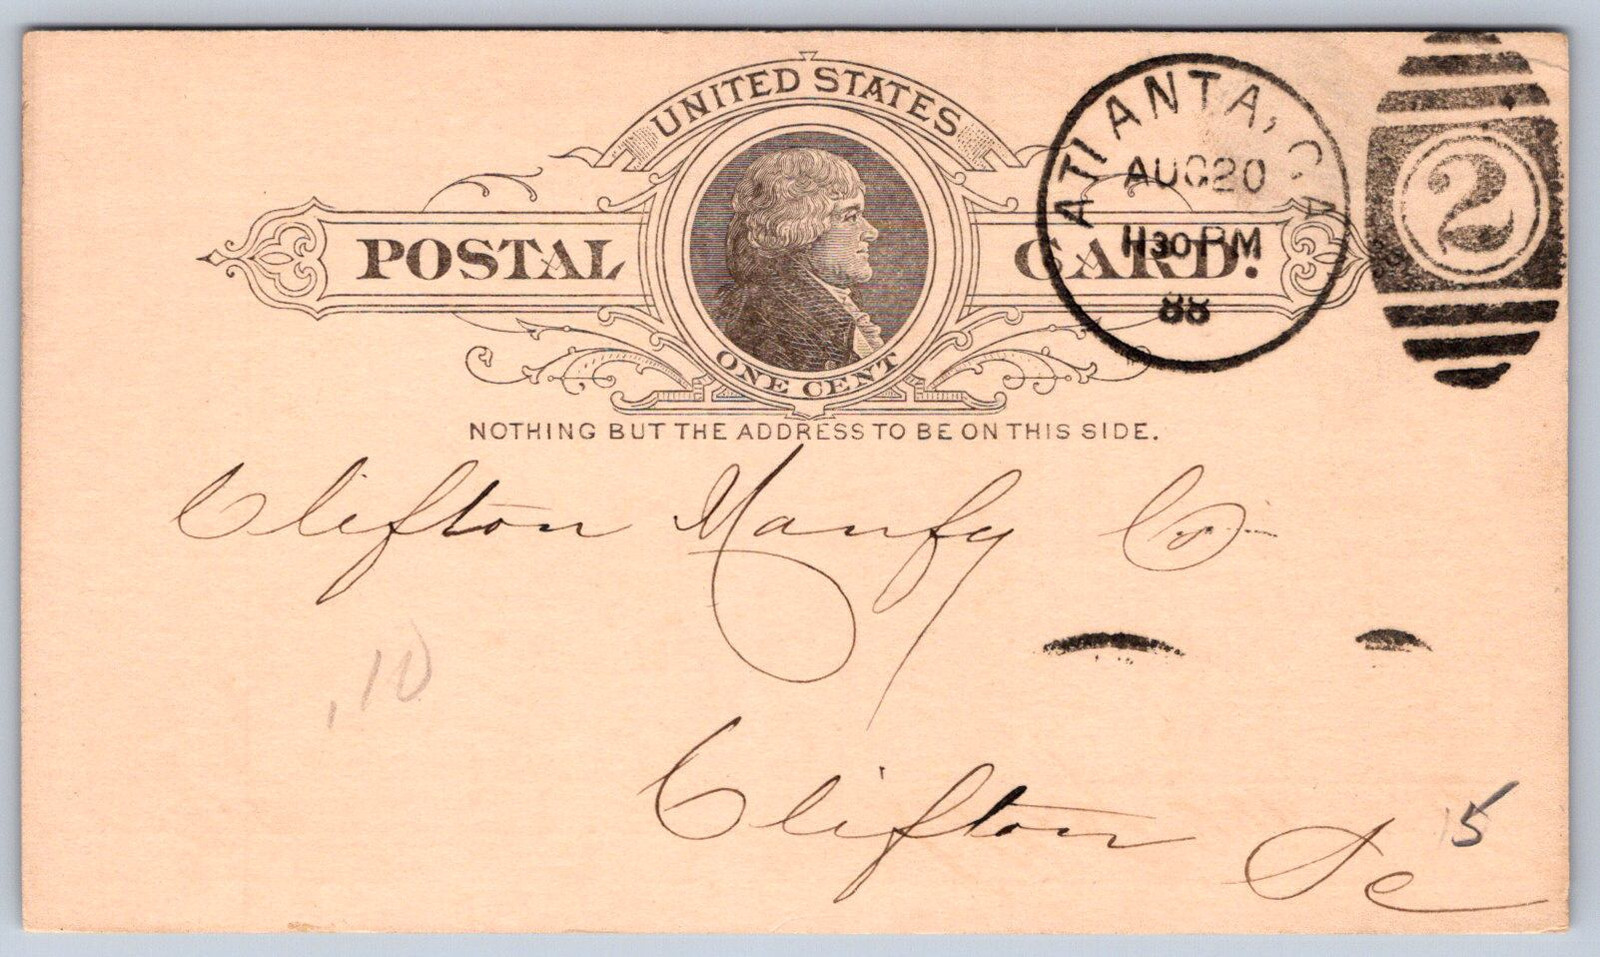 UNITED STATES
POSTAL CARD.
ONE CENT
ATLANTA, GA
AUG 20
11 30 PM
88
2
NOTHING BUT THE ADDRESS TO BE ON THIS SIDE.
Clifton Manfy Co
.10
Clifton Sc
15